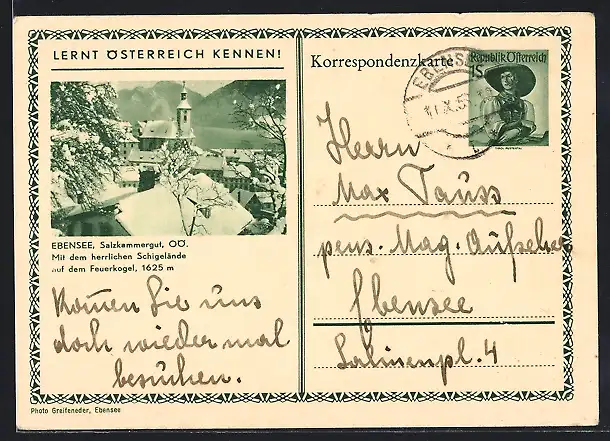 LERNT ÖSTERREICH KENNEN!
EBENSEE, Salzkammergut, OÖ.
Mit dem herrlichen Schigelände
auf dem Feuerkogel, 1625 m
Komen Sie uns
doch wieder mal
besuchen.
Photo Greifeneder, Ebensee
Korrespondenzkarte
Republik Österreich
1S
EBENSEE
Herrn
Max Tauss
pens. Mag. Aufseher
Ebensee
Salinenpl. 4